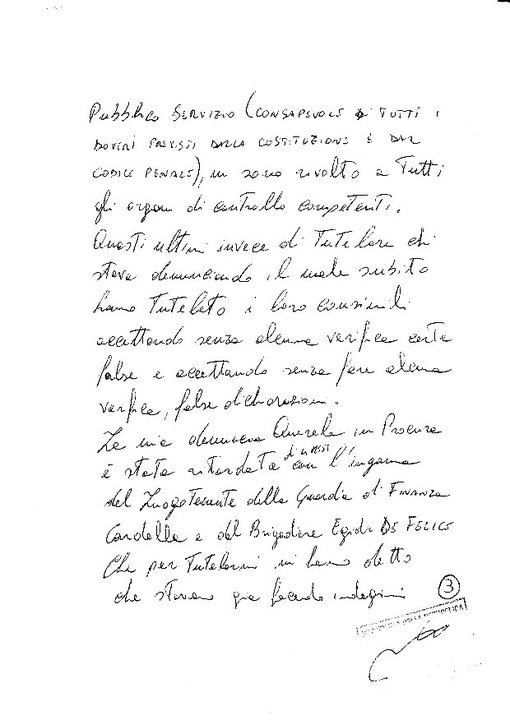 PUBBLICO SERVIZIO (CONSAPEVOLE DI TUTTI I
DOVERI PREVISTI DALLA COSTITUZIONE E DAL
CODICE PENALE), mi sono rivolto a Tutti
gli organi di controllo competenti.
Questi ultimi invece di Tutelare chi
stava denunciando il male subito
hanno Tutelato i loro consimili
accettando senza alcuna verifica carte
false e accettando senza fare alcuna
verifica, false dichiarazioni.
La mia denuncia Querela in Procura
è stata ritardata di mesi con l'inganno
del Luogotenente della Guardia di FINANZA
Cardella e del Brigadiere Egidio DE FELICE
Che per Tutelarmi mi hanno detto
che stavano già facendo indagini
3